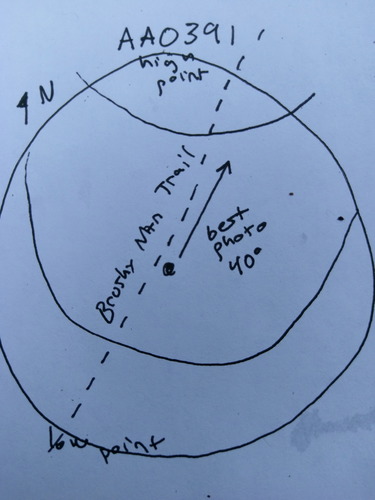 AA0391
high
point
N
Brushy Mtn Trail
best
photo
40°
low point